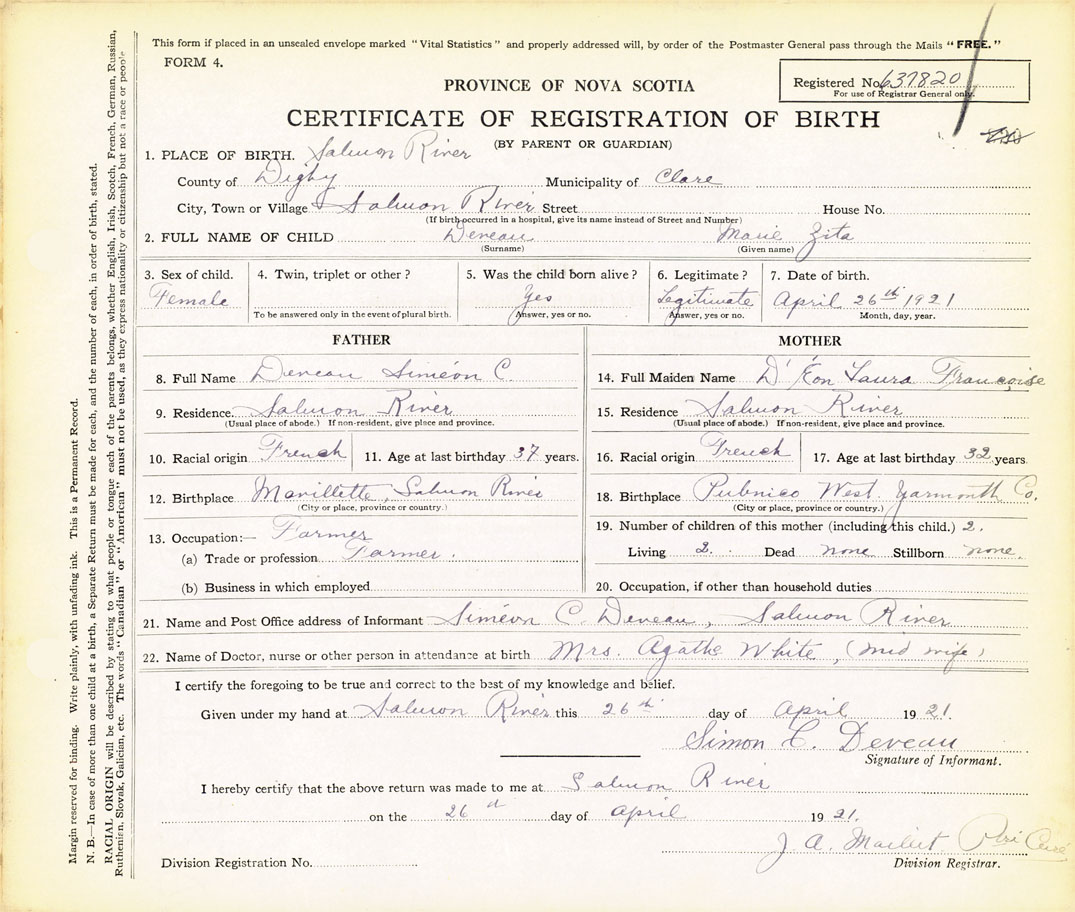 This form if placed in an unsealed envelope marked "Vital Statistics" and properly addressed will, by order of the Postmaster General pass through the Mails "FREE."
FORM 4.
Registered No. 637820
For use of Registrar General only.
PROVINCE OF NOVA SCOTIA
CERTIFICATE OF REGISTRATION OF BIRTH
(BY PARENT OR GUARDIAN)
1. PLACE OF BIRTH. Salmon River
County of Digby Municipality of Clare
City, Town or Village Salmon River Street House No.
(If birth occurred in a hospital, give its name instead of Street and Number)
2. FULL NAME OF CHILD Deveau Marie Zita
(Surname) (Given name)
3. Sex of child. 4. Twin, triplet or other? 5. Was the child born alive? 6. Legitimate? 7. Date of birth.
Female Yes Legitimate April 26th 1921
To be answered only in the event of plural birth. Answer, yes or no. Answer, yes or no. Month, day, year.
FATHER MOTHER
8. Full Name Deveau Siméon C. 14. Full Maiden Name D'Eon Laura Françoise
9. Residence. Salmon River 15. Residence Salmon River
(Usual place of abode.) If non-resident, give place and province. (Usual place of abode.) If non-resident, give place and province.
10. Racial origin French 11. Age at last birthday 37 years. 16. Racial origin French 17. Age at last birthday 32 years
12. Birthplace Mavillette, Salmon River 18. Birthplace Pubnico West Yarmouth Co.
(City or place, province or country.) (City or place, province or country.)
13. Occupation:— Farmer 19. Number of children of this mother (including this child.) 2.
(a) Trade or profession Farmer. Living 2. Dead none Stillborn none.
(b) Business in which employed 20. Occupation, if other than household duties
21. Name and Post Office address of Informant Siméon C. Deveau, Salmon River
22. Name of Doctor, nurse or other person in attendance at birth Mrs. Agathe White, (mid wife)
I certify the foregoing to be true and correct to the best of my knowledge and belief.
Given under my hand at Salmon River this 26th day of April 1921.
Simon C. Deveau
Signature of Informant.
I hereby certify that the above return was made to me at Salmon River
on the 26 day of April 1921.
J. A. Maillet Curé
Division Registration No. Division Registrar.
Margin reserved for binding. Write plainly, with unfading ink. This is a Permanent Record.
N. B.—In case of more than one child at a birth, a Separate Return must be made for each, and the number of each, in order of birth, stated.
RACIAL ORIGIN will be described by stating to what people or tongue each of the parents belongs, whether English, Irish, Scotch, French, German, Russian,
Ruthenian, Slovak, Galician, etc. The words "Canadian" or "American" must not be used, as they express nationality or citizenship but not a race or people